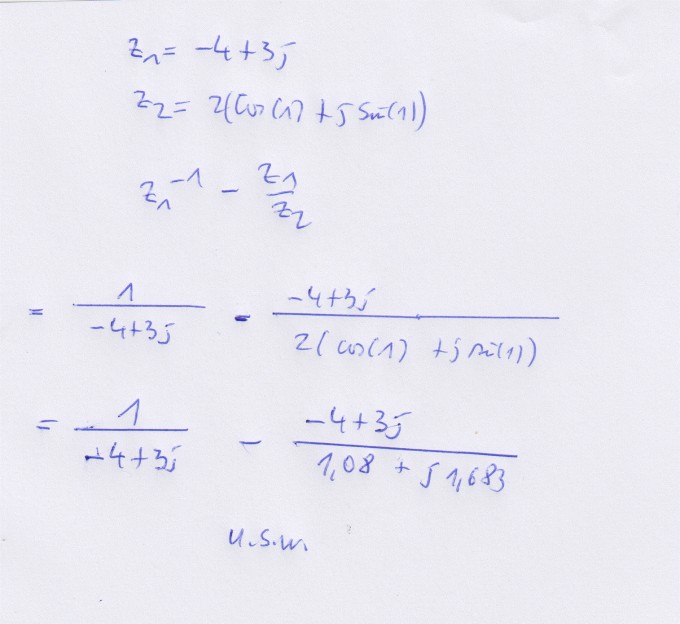 z₁ = -4+3j
z₂ = 2(cos(1) + j sin(1))
z₁⁻¹ - z₁/z₂
= 1/(-4+3j) - (-4+3j)/(2(cos(1) + j sin(1)))
= 1/(-4+3j) - (-4+3j)/(1,08 + j 1,683)
u.s.w.